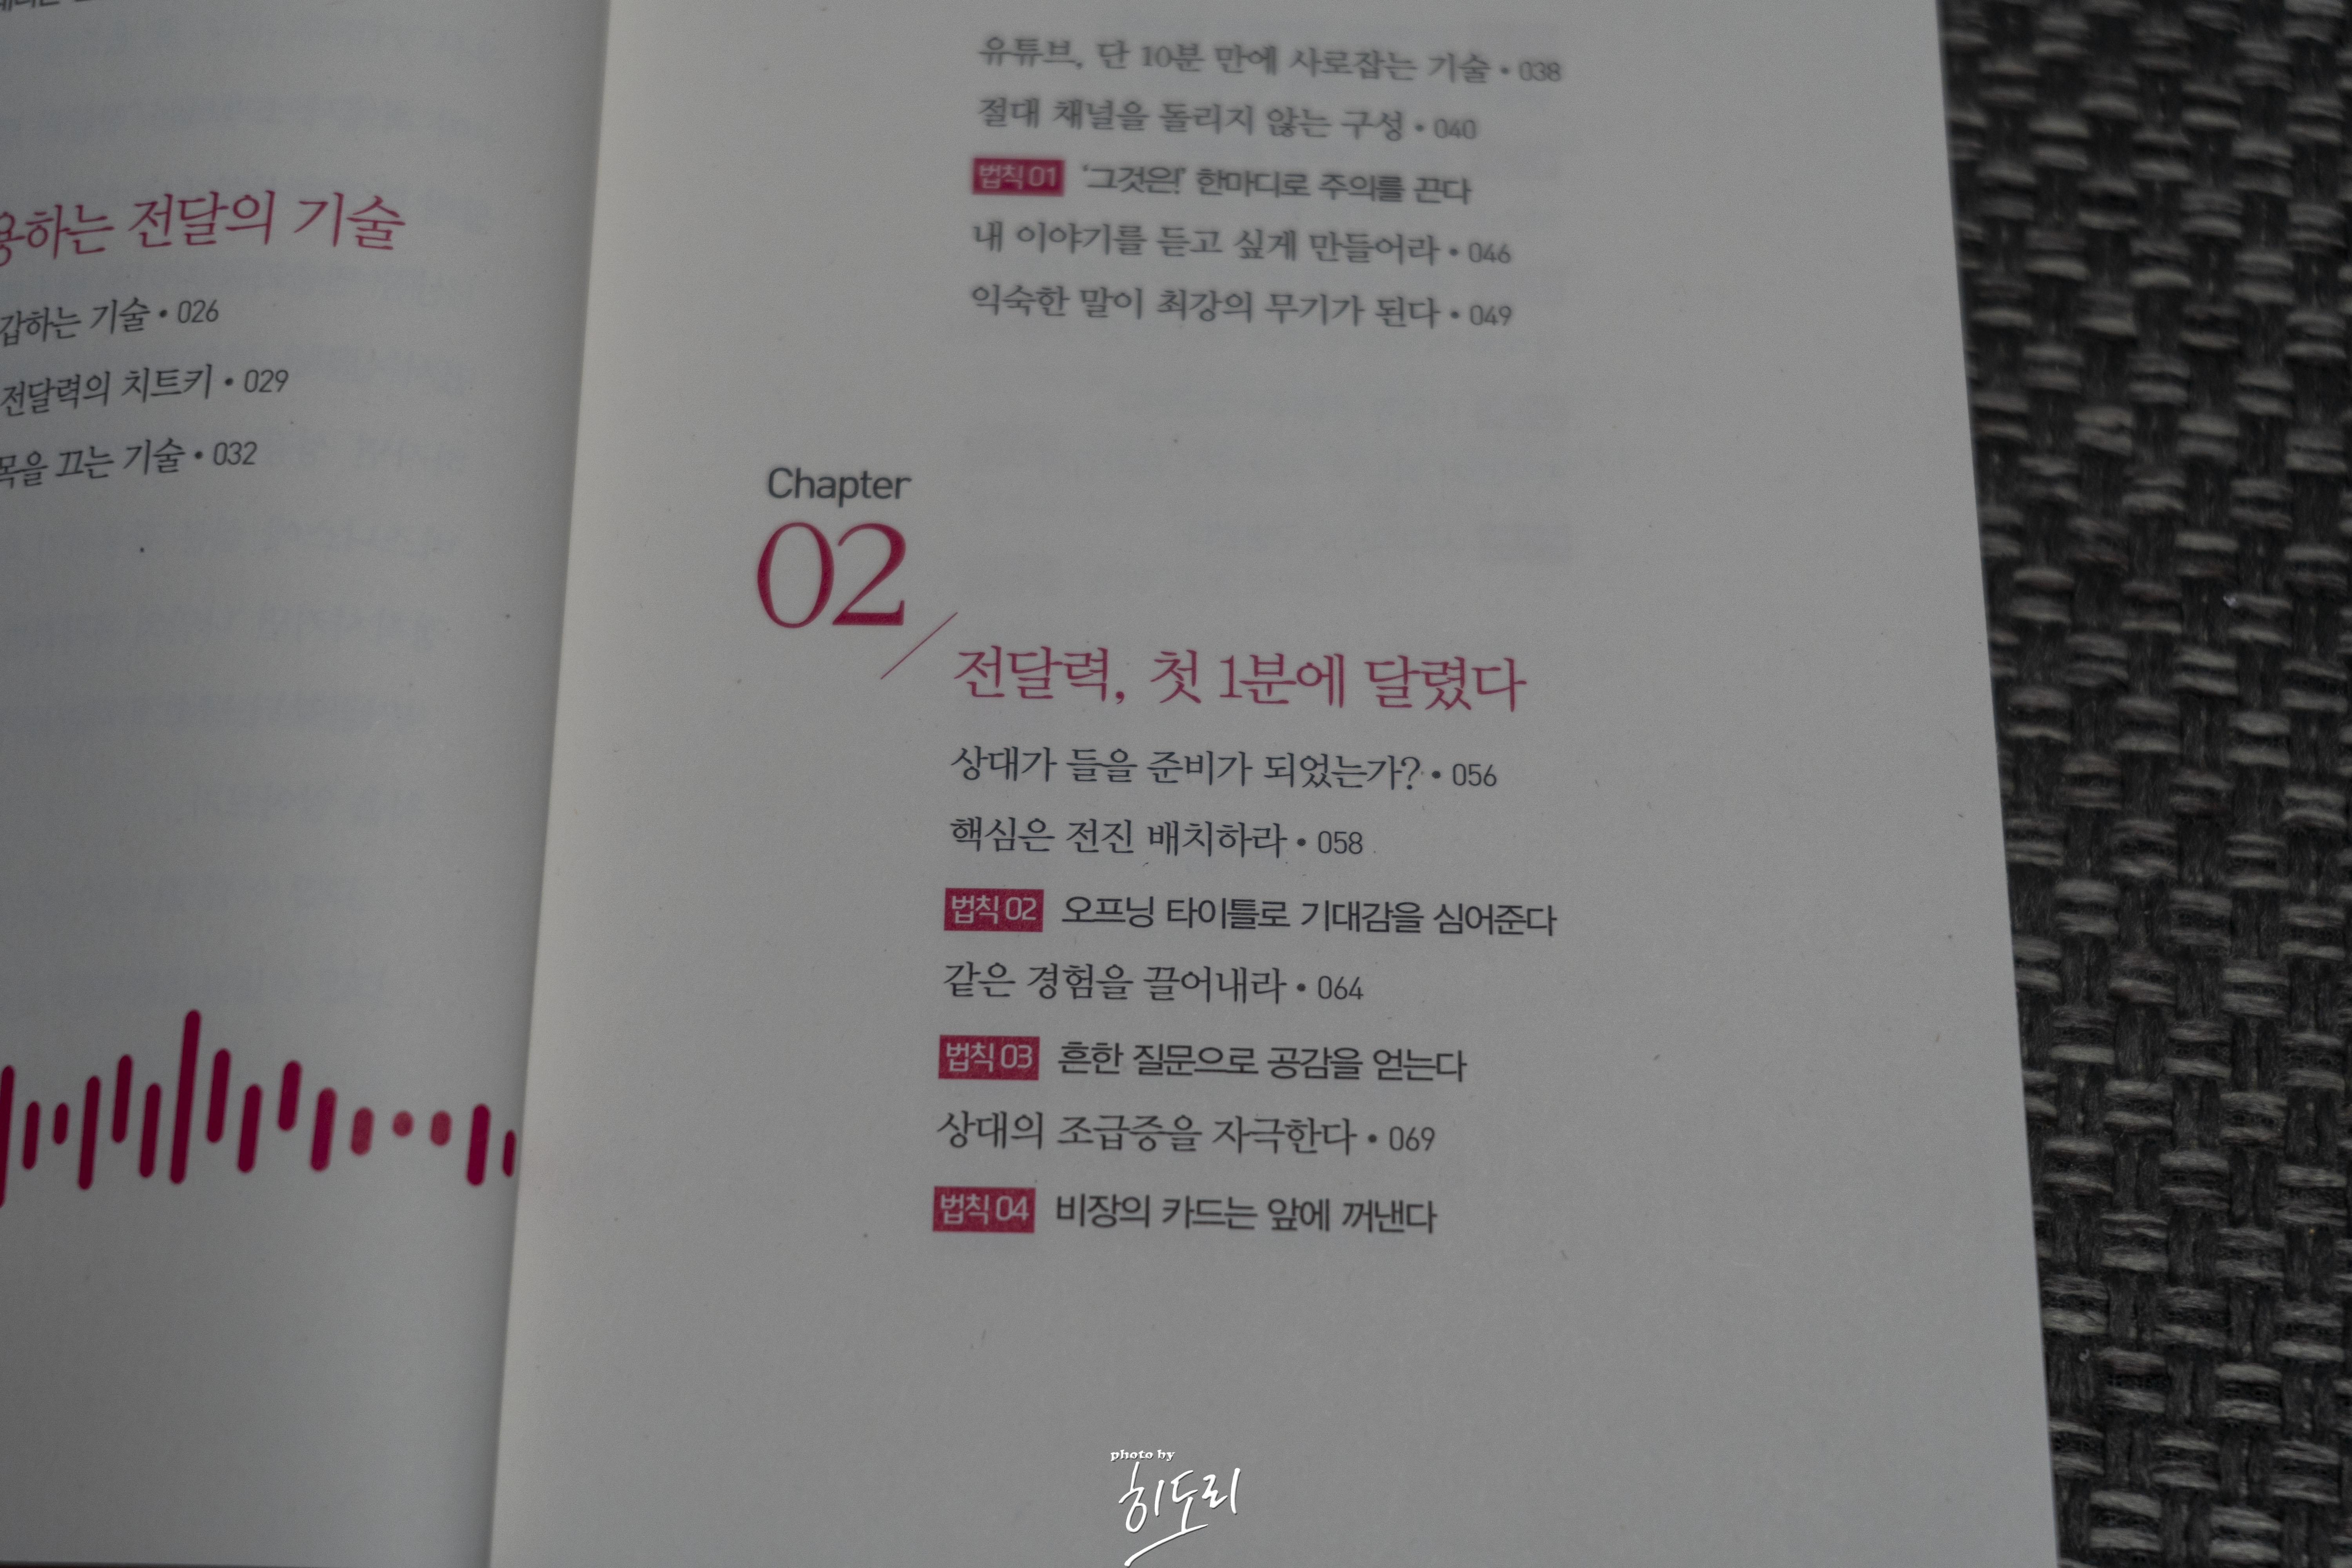 전달의 기술
기술 • 026
전달력의 치트키 • 029
끄는 기술 • 032
유튜브, 단 10분 만에 사로잡는 기술 • 038
절대 채널을 돌리지 않는 구성 • 040
법칙 01 ‘그것은!’ 한마디로 주의를 끈다
내 이야기를 듣고 싶게 만들어라 • 046
익숙한 말이 최강의 무기가 된다 • 049
Chapter
02
전달력, 첫 1분에 달렸다
상대가 들을 준비가 되었는가? • 056
핵심은 전진 배치하라 • 058
법칙 02 오프닝 타이틀로 기대감을 심어준다
같은 경험을 끌어내라 • 064
법칙 03 흔한 질문으로 공감을 얻는다
상대의 조급증을 자극한다 • 069
법칙 04 비장의 카드는 앞에 꺼낸다
photo by
히도리